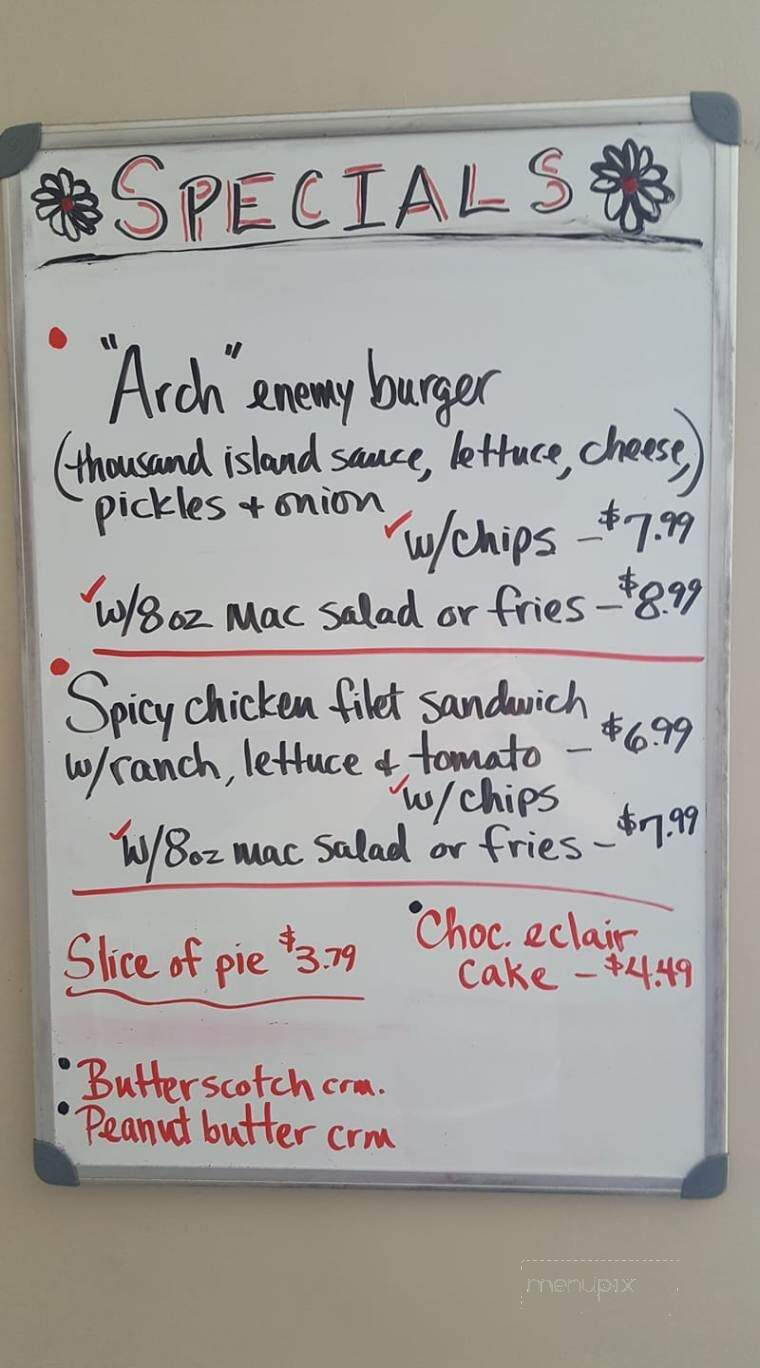 SPECIALS
"Arch" enemy burger
(thousand island sauce, lettuce, cheese,)
pickles + onion
w/chips - $7.99
w/8 oz Mac salad or fries - $8.99
Spicy chicken filet sandwich
w/ranch, lettuce & tomato - $6.99
w/chips
w/8oz mac salad or fries - $7.99
Slice of pie $3.79
• Choc. eclair
cake - $4.49
• Butterscotch crm.
• Peanut butter crm
menupix